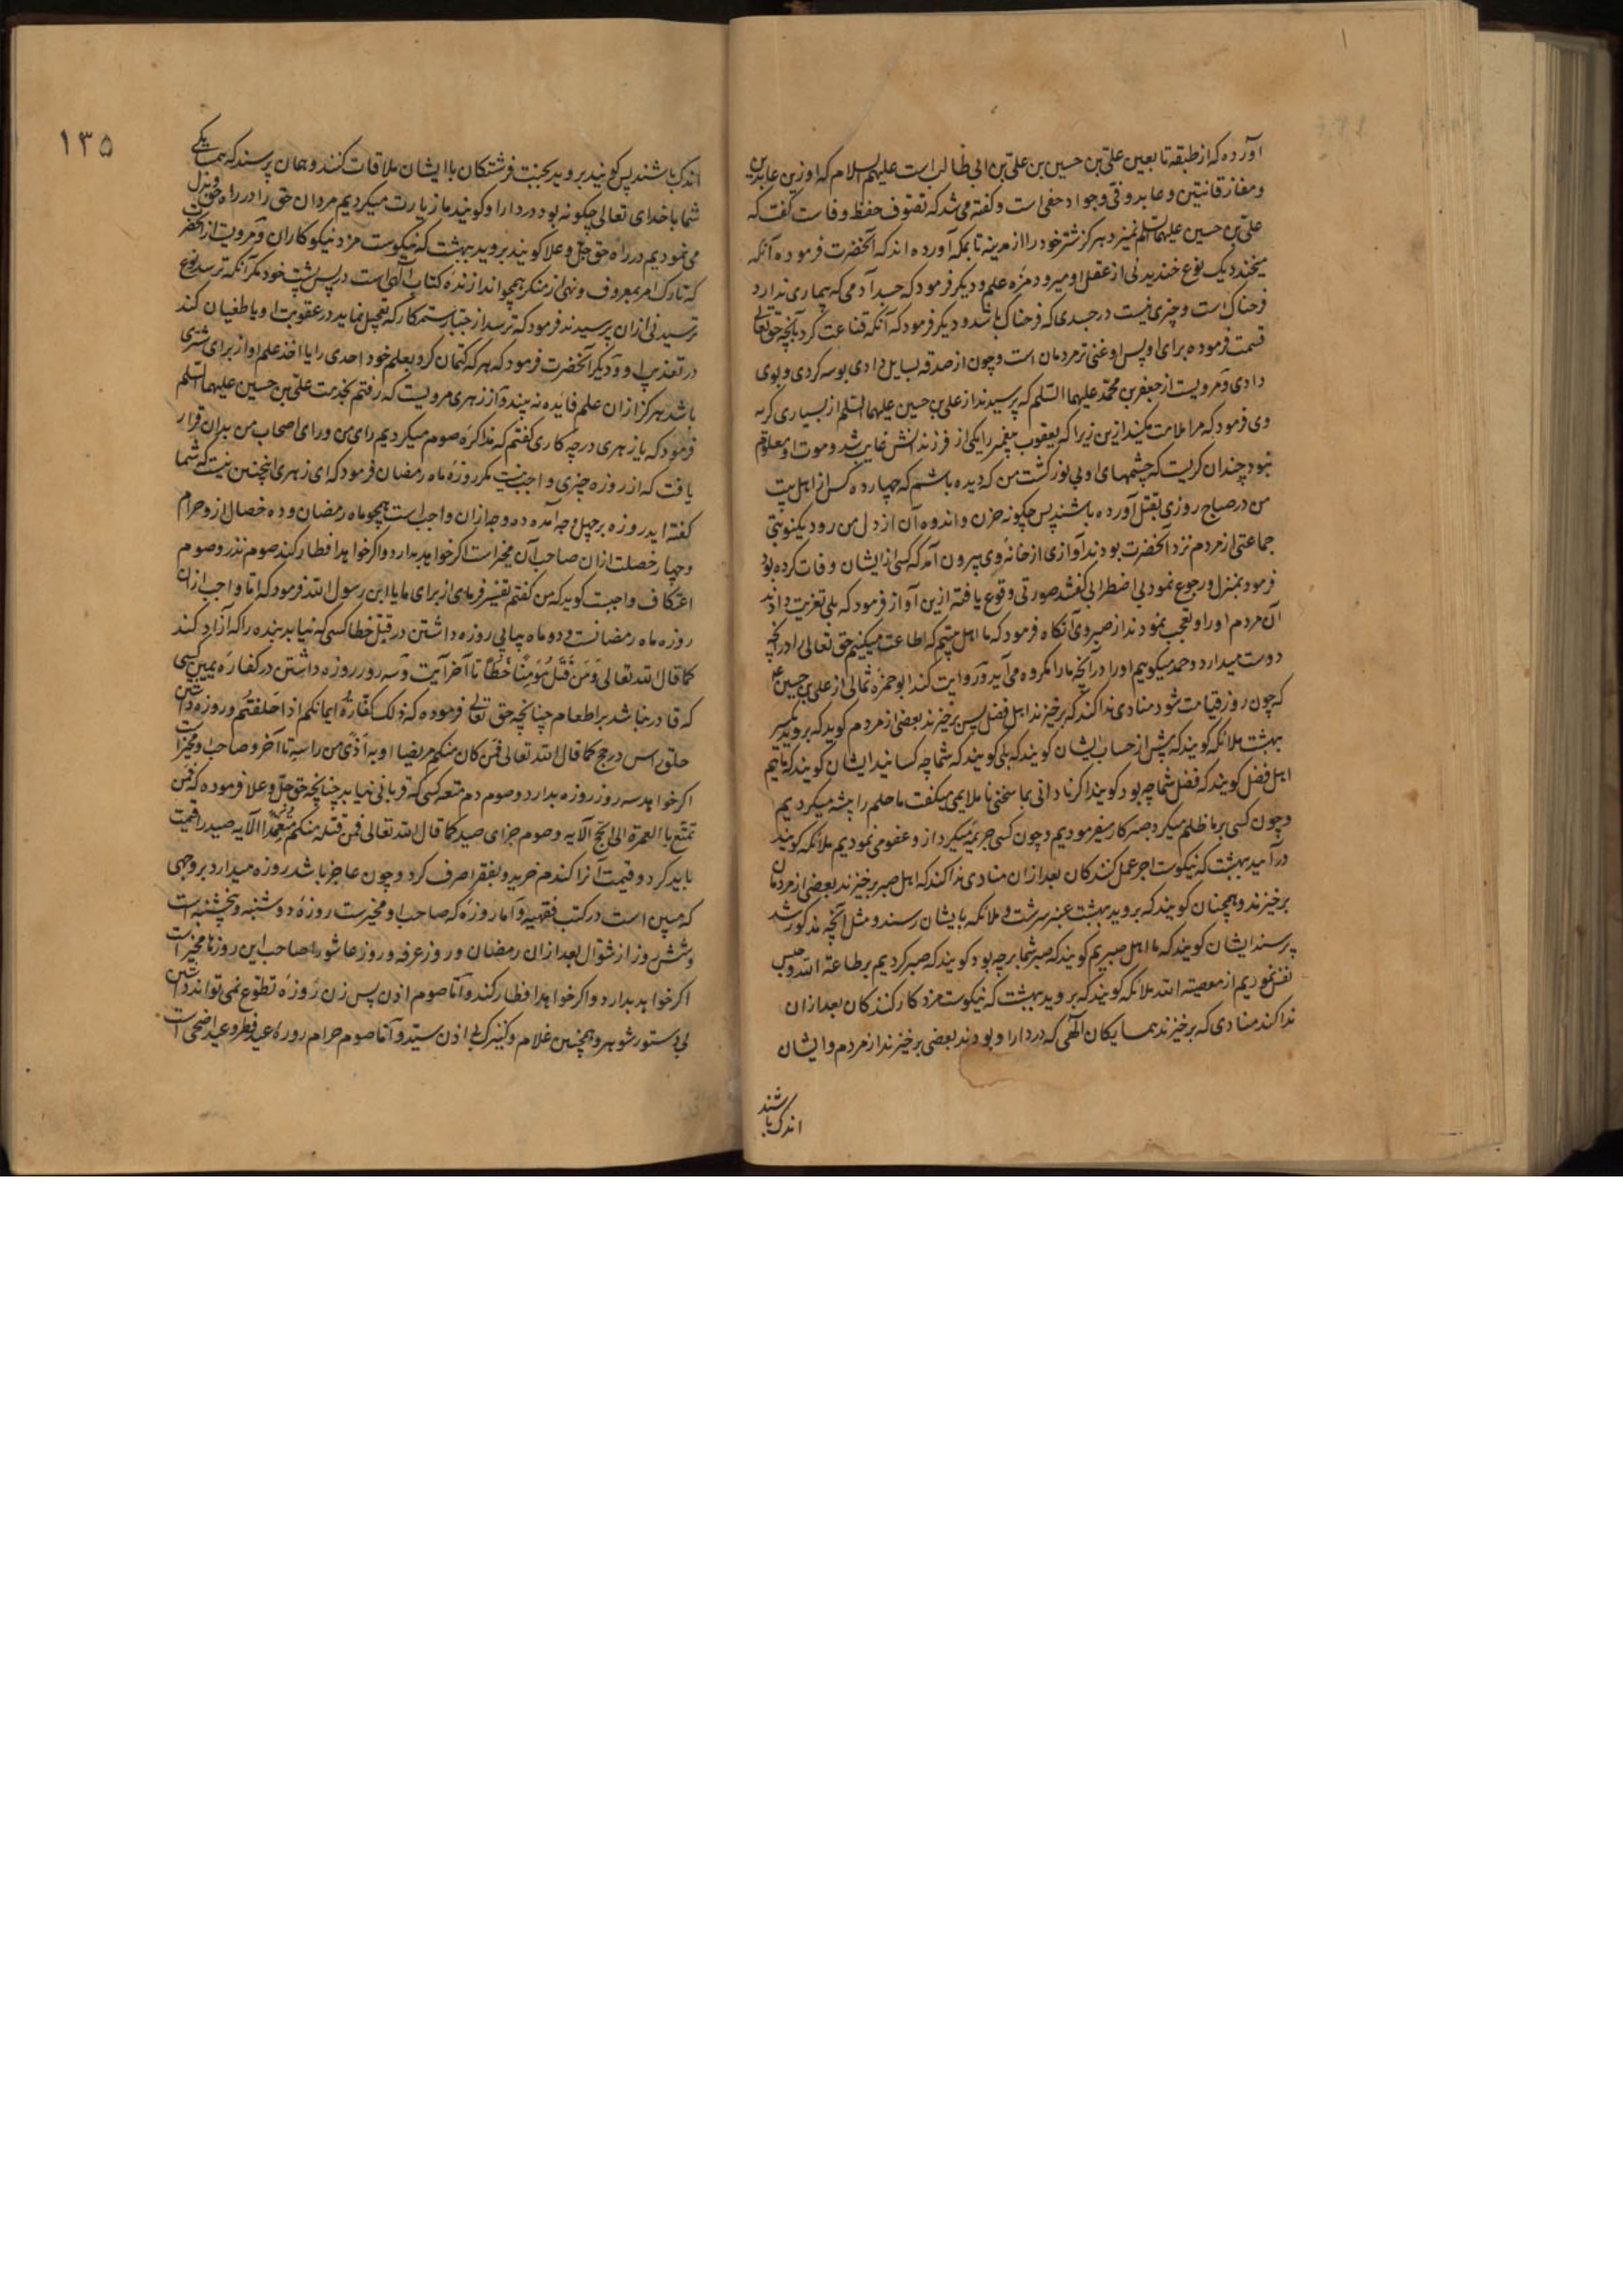 آورده که از طبقه تابعین علی بن حسین بن علی بن ابی طالب است علیهم السلام که او زین عابدین
و مفاز قانتین و عابد وفی و جواد حفی است و گفته می شد که تصوف حفظ وفاست گفت که
علی بن حسین علیهما السلم نمیزد هرگز شتر خود را از مدینه تا بمکه آورده اند که آنحضرت فرموده آنکه
میخندد یک نوع خندیدنی از عقل او میرود مزه علم و دیگر فرمود که جسد آدمی که بیماری ندارد
فرحناک است و چیزی نیست در جسدی که فرحناک باشد و دیگر فرمود که آنکه قناعت کرد بآنچه حق تعالی
قسمت فرموده برای او پس او غنی تر مردمان است و چون از صدقه بسایل دادی بوسه کردی و بوی
دادی و مرویست از جعفر بن محمد علیهما السلم که پرسیدند از علی بن حسین علیهما السلم از بسیاری کریه
وی فرمود که مرا ملامت مکنید ازین زیرا که یعقوب پیغمبر را یکی از فرزندانش غایب شد و موت او معلوم
نبود چندان کریست که چشمهای او بی نور کشت من که دیده باشم که چهارده کس از اهل بیت
من در صباح روزی بقتل آورده باشند پس چکونه حزن و اندوه آن از دل من رود
جماعتی از مردم نزد آنحضرت بودند آوازی از خانه وی بیرون آمد که کسی از ایشان وفات کرده بود
فرمود بمنزل و رجوع نمود بی اضطرابی گفتند صورتی وقوع یافته ازین آواز فرمود که بلی تعزیت دادند
آن مردم او را و تعجب نمودند از صبر وی آنکاه فرمود که ما اهل بیتیم که اطاعت میکنیم حق تعالی را در آنچه
دوست میدارد و حمد میکوییم او را در آنچه ما را مکروه می آید و روایت کند ابو حمزه ثمالی از علی بن حسین
که چون روز قیامت شود منادی ندا کند که برخیزند اهل فضل پس برخیزند بعضی از مردم کوید که بروید
بهشت ملائکه کویند که پیش از حساب ایشان کویند که بلی کویند که شما چه کسانید ایشان کویند که ماییم
اهل فضل کویند که فضل شما چه بود کویند اکر نادانی بما سخنی ناملایمی میکفت ما حلم را پیشه میکردیم
و چون کسی بر ما ظلم میکرد صبر کار میفرمودیم و چون کسی جریمه میکرد از و عفو می نمودیم ملائکه کویند
در آیید ببهشت که نیکوست اجر عمل کنندکان بعد از ان منادی ندا کند که اهل صبر برخیزند بعضی از مردمان
برخیزند و همچنان کویند که بروید ببهشت عنبر سرشت و ملائکه بایشان رسند و مثل آنچه مذکور شد
پرسند ایشان کویند که ما اهل صبریم کویند که صبر شما بر چه بود کویند که صبر کردیم بر طاعة الله و حبس
نفس نمودیم از معصیة الله ملائکه کویند که بروید ببهشت که نیکوست مزد کار کنندکان بعد از ان
ندا کند منادی که برخیزند همسایکان الهی که در دار او بودند بعضی برخیزند از مردم و ایشان
اندک باشند
۱۳۵
اندک باشند پس کویند بروید بجنت فرشتکان با ایشان ملاقات کنند و همان پرسند که همسایکی
شما با خدای تعالی چکونه بود در دار او کویند ما زیارت میکردیم مردان حق را در راه حق و بذل
می نمودیم در راه حق جل و علا کویند بروید ببهشت که نیکوست مزد نیکوکاران و مرویست از آنحضرت
که تارک امر بمعروف و نهی از منکر همچو اندازنده کتاب الهی است در پس پشت خود مکر آنکه ترسد نوع
ترسیدنی از ان پرسیدند فرمود که ترسد از جبار ستمکار که تعجیل نماید در عقوبت او یا طغیان کند
در تعذیب او و دیگر آنحضرت فرمود که هر که کتمان کرد بعلم خود احدی را یا اخذ علم او از برای
باشد هرکز از ان علم فایده نه بیند و از زهری مرویست که رفتم بخدمت علی بن حسین علیهما السلم
فرمود که یا زهری در چه کاری گفتم که مذاکره صوم میکردیم رای من و رای اصحاب من بدان قرار
یافت که از روزه چیزی واجب نیست مکر روزه ماه رمضان فرمود که ای زهری اینچنین نیست که شما
گفته اید روزه بر چهل وجه آمده ده وجه از ان واجب است همچو ماه رمضان و ده خصال از و حرام
و چهارده خصلت از ان صاحب آن مخیر است اکر خواهد بدارد و اکر خواهد افطار کند صوم نذر و صوم
اعتکاف واجبست کوید که من گفتم تفسیر فرمای از برای ما یا ابن رسول الله فرمود که اما واجب از ان
روزه ماه رمضانست و دو ماه پیاپی روزه داشتن در قتل خطا کسی که نیابد بنده را که آزاد کند
کما قال الله تعالی وَمَن قَتَلَ مُؤمِنًا خَطَأً تا آخر آیت و سه روز روزه داشتن در کفاره یمین کسی
که قادر نباشد بر اطعام چنانچه حق تعالی فرموده که ذلک کفّارة ایمانکم اذا حلفتم و روزه داشتن
حلق راس در حج کما قال الله تعالی فمن کان منکم مریضا او به اذی من راسه تا آخر و صاحب او مخیر است
اکر خواهد سه روز روزه بدارد و صوم دم متعه کسی که قربانی نیابد چنانچه حق جل و علا فرموده که فمن
تمتع بالعمرة الی الحج الآیه و صوم جزای صید کما قال الله تعالی فمن قتله منکم متعمدا الآیه صید را قیمت
باید کرد و قیمت آنرا کندم خرید و بفقرا صرف کرد و چون عاجز باشد روزه میدارد بر وجهی
که مبین است در کتب فقهیه و اما روزه که صاحب او مخیرست روزه دوشنبه و پنجشنبه است
و شش روز از شوال بعد از ان رمضان و روز عرفه و روز عاشورا صاحب این روزها مخیر است
اکر خواهد بدارد و اکر خواهد افطار کند و اما صوم اذن پس زن روزه تطوع نمی تواند داشتن
بی دستور شوهر و همچنین غلام و کنیزک بی اذن سید و اما صوم حرام روزه عید فطر و عید اضحی است